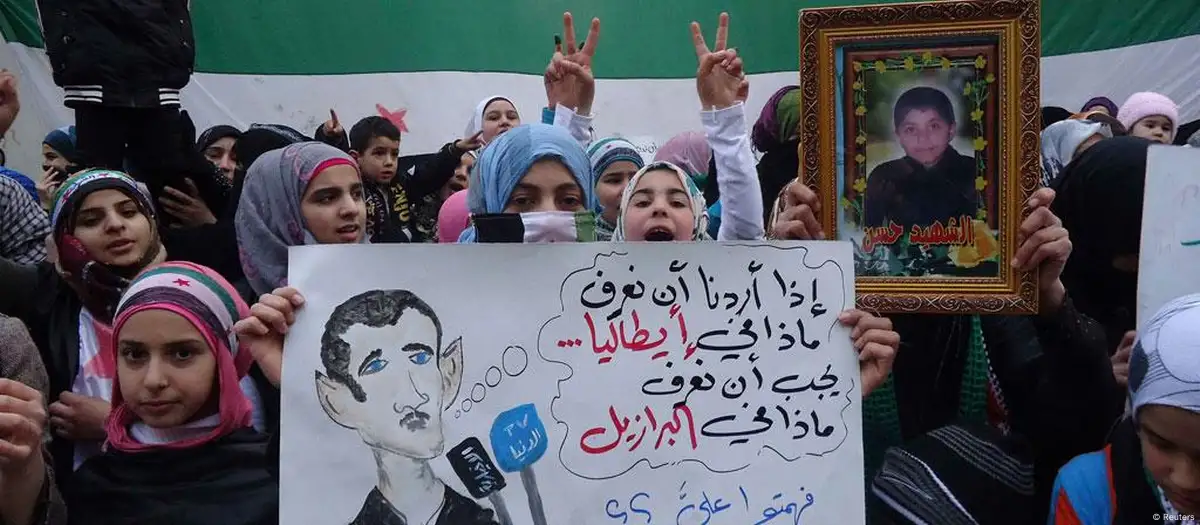 إذا أردنا أن نعرف
ماذا في إيطاليا...
يجب أن نعرف
ماذا في البرازيل
فهمتوا عليَّ ؟؟
TV
الدنيا
الشهيد حسن
© Reuters